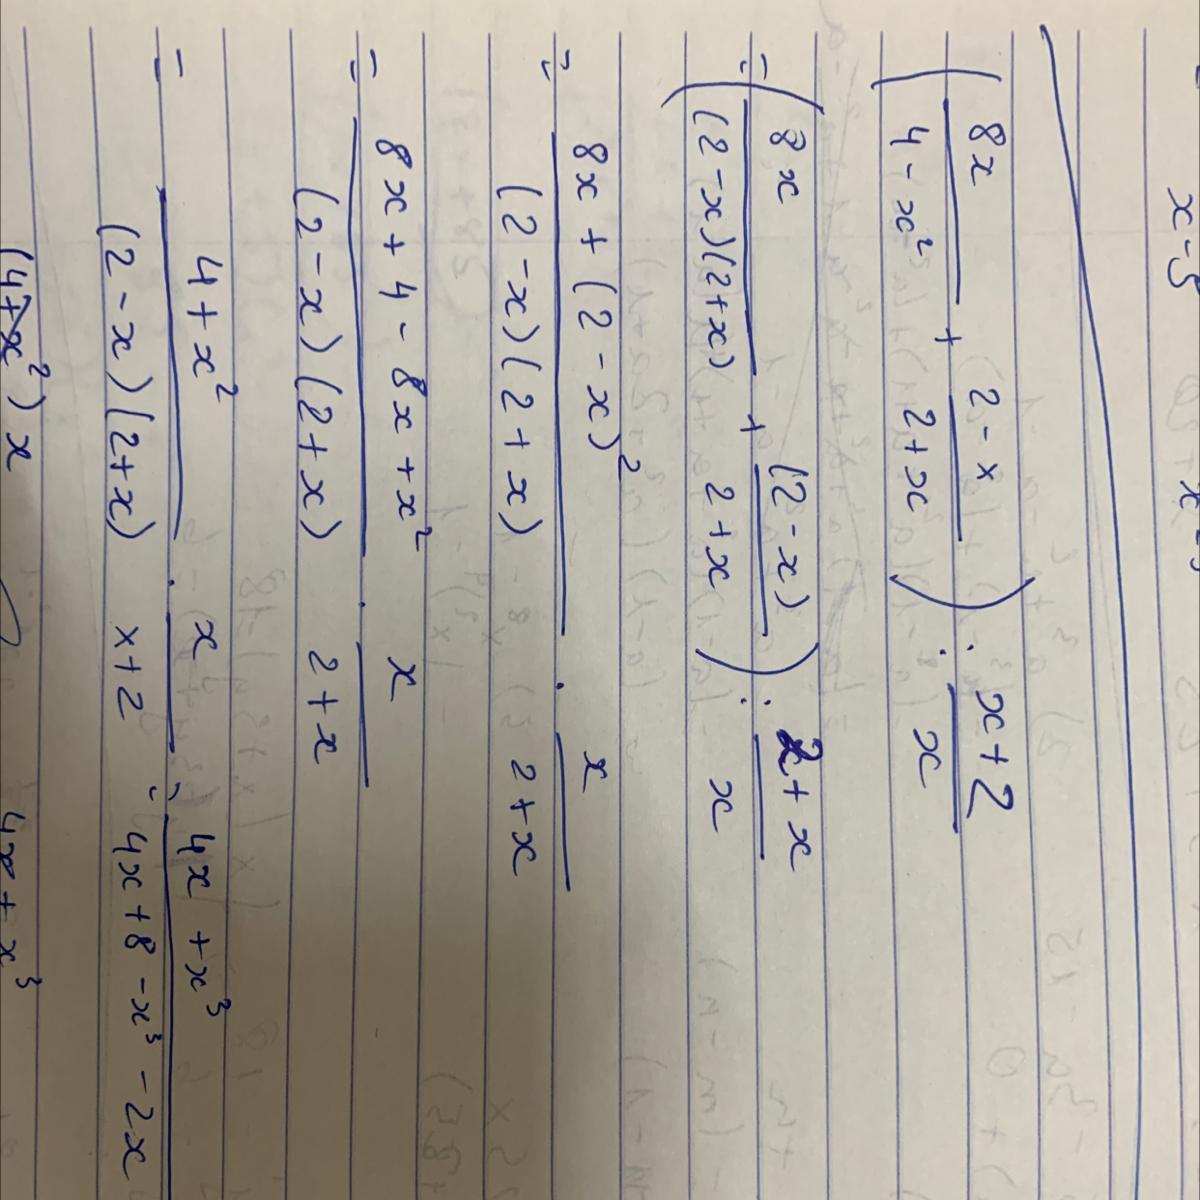 x-5
( 8x/(4 - x²) + (2 - x)/(2 + x) ) : (x + 2)/x
= ( 8x/((2 - x)(2 + x)) + (2 - x)/(2 + x) ) : (2 + x)/x
= (8x + (2 - x)²)/((2 - x)(2 + x)) · x/(2 + x)
= (8x + 4 - 8x + x²)/((2 - x)(2 + x)) · x/(2 + x)
= (4 + x²)/((2 - x)(2 + x)) · x/(x + 2) = (4x + x³)/(4x + 8 - x³ - 2x
(4 + x²) x 4x + x³